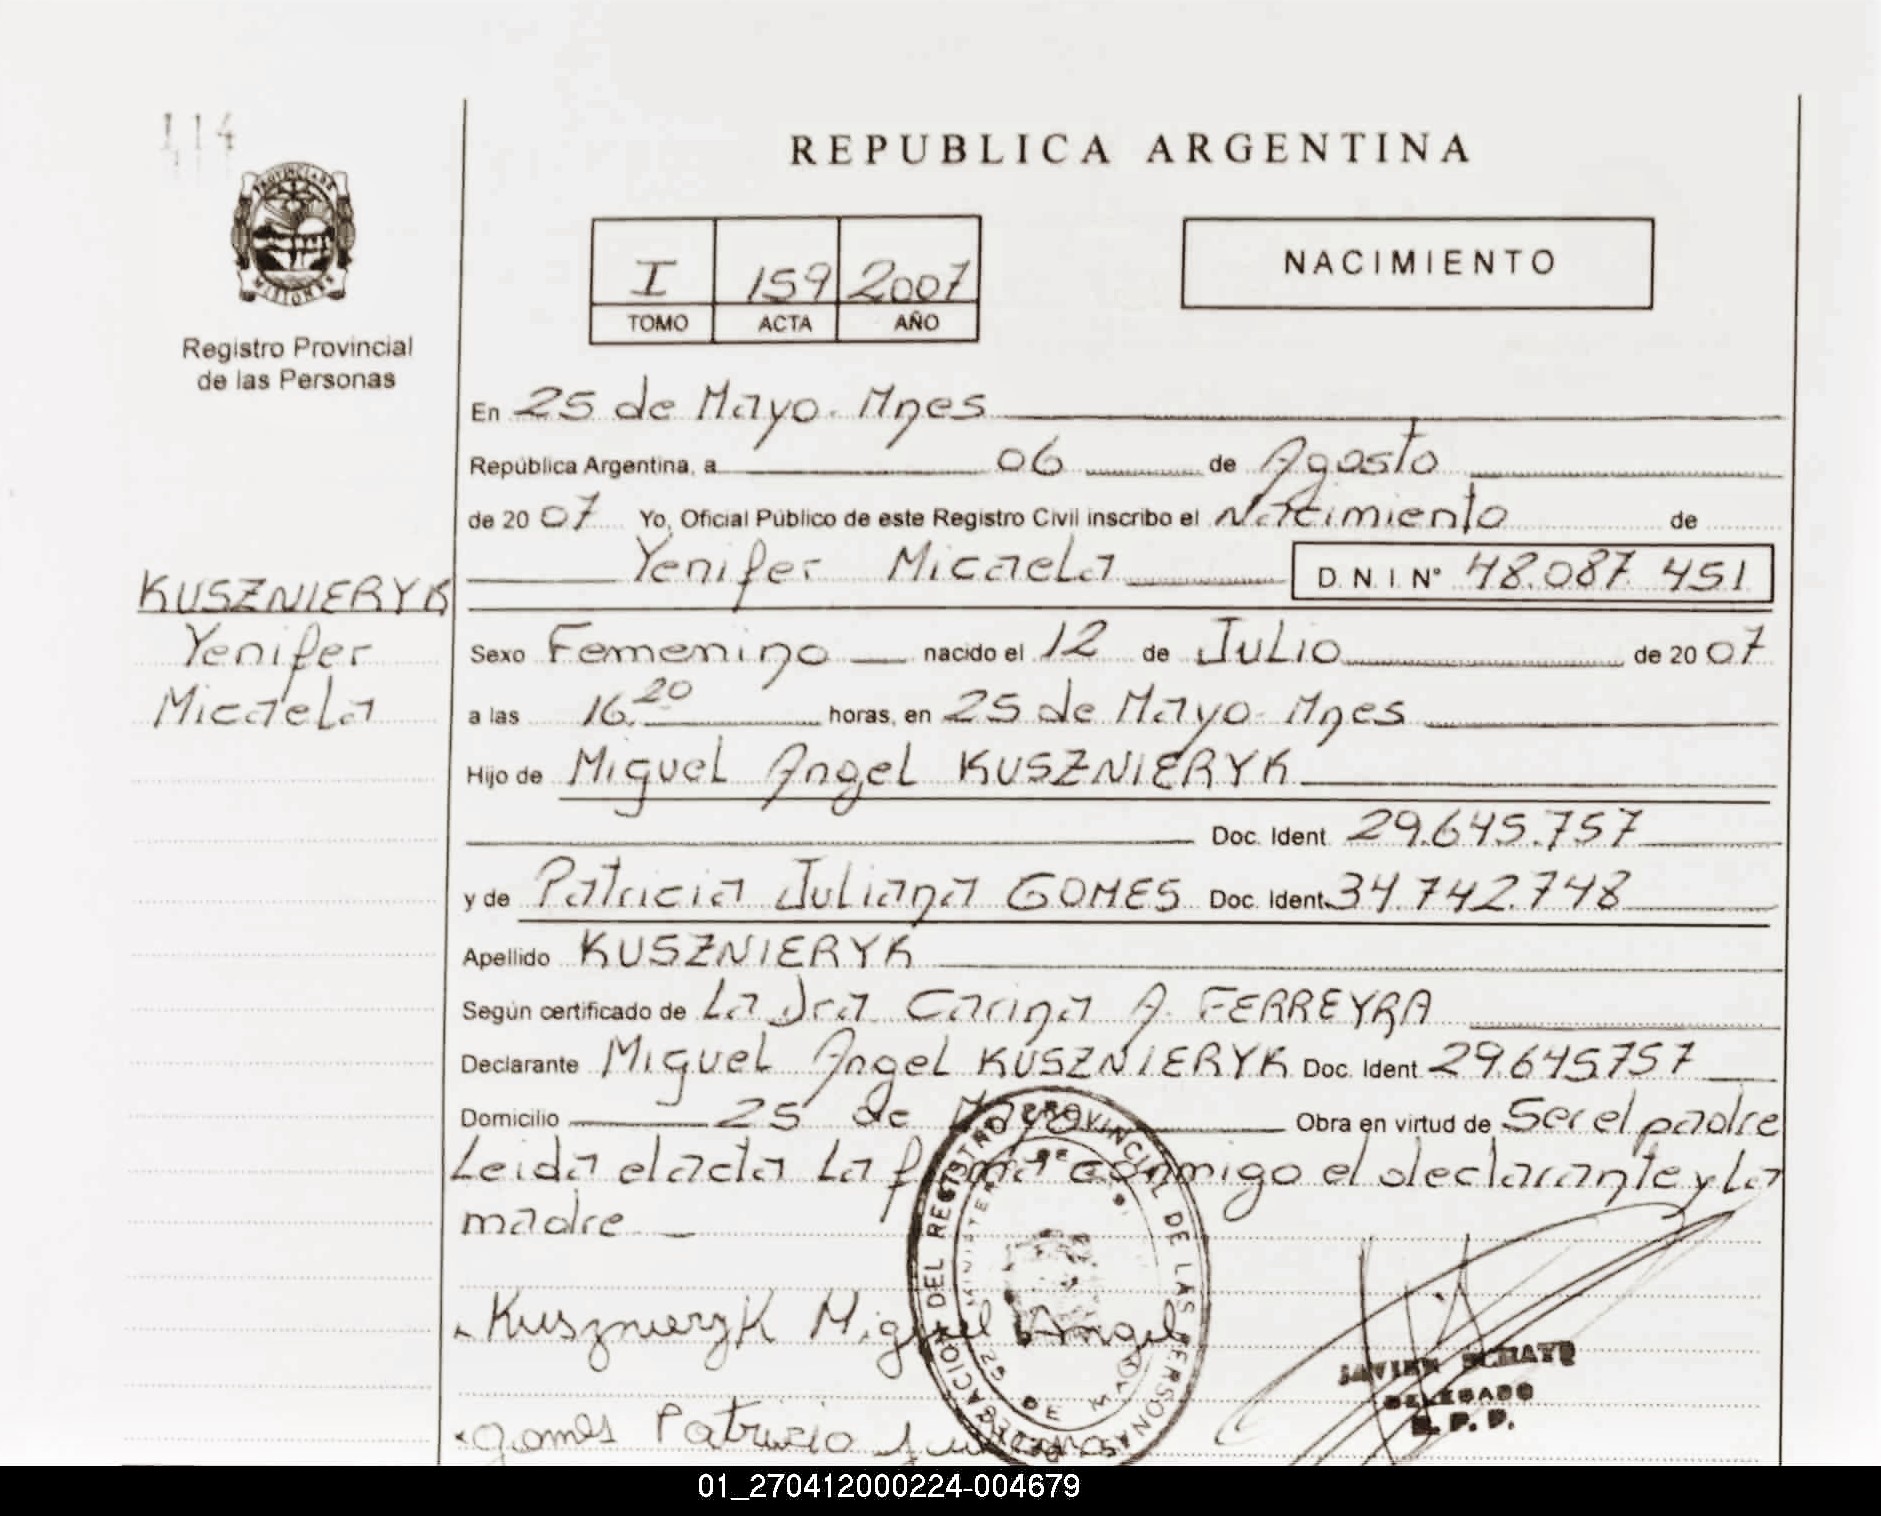 114
REPUBLICA ARGENTINA
PROVINCIA DE MISIONES
I 159 2007
TOMO ACTA AÑO
NACIMIENTO
Registro Provincial
de las Personas
En 25 de Mayo - Mnes
República Argentina, a 06 de Agosto
de 20 07 Yo, Oficial Público de este Registro Civil inscribo el Nacimiento de
Yenifer Micaela D.N.I. N° 48.087.451
KUSZNIERYK
Yenifer
Micaela
Sexo Femenino nacido el 12 de Julio de 20 07
a las 16.20 horas, en 25 de Mayo - Mnes
Hijo de Miguel Angel KUSZNIERYK
Doc. Ident. 29.645.757
y de Patricia Juliana GOMES Doc. Ident. 34.742.748
Apellido KUSZNIERYK
Según certificado de La Dra Carina A. FERREYRA
Declarante Miguel Angel KUSZNIERYK Doc. Ident. 29.645757
Domicilio 25 de Mayo Obra en virtud de Ser el padre
Leida el acta La firma conmigo el declarante y La
madre
Kuszneryk Miguel Angel
DELEGACION DEL REGISTRO PROVINCIAL DE LAS PERSONAS
25 DE MAYO
JAVIER
DELEGADO
R. P. P.
Gomes Patricia
01_270412000224-004679